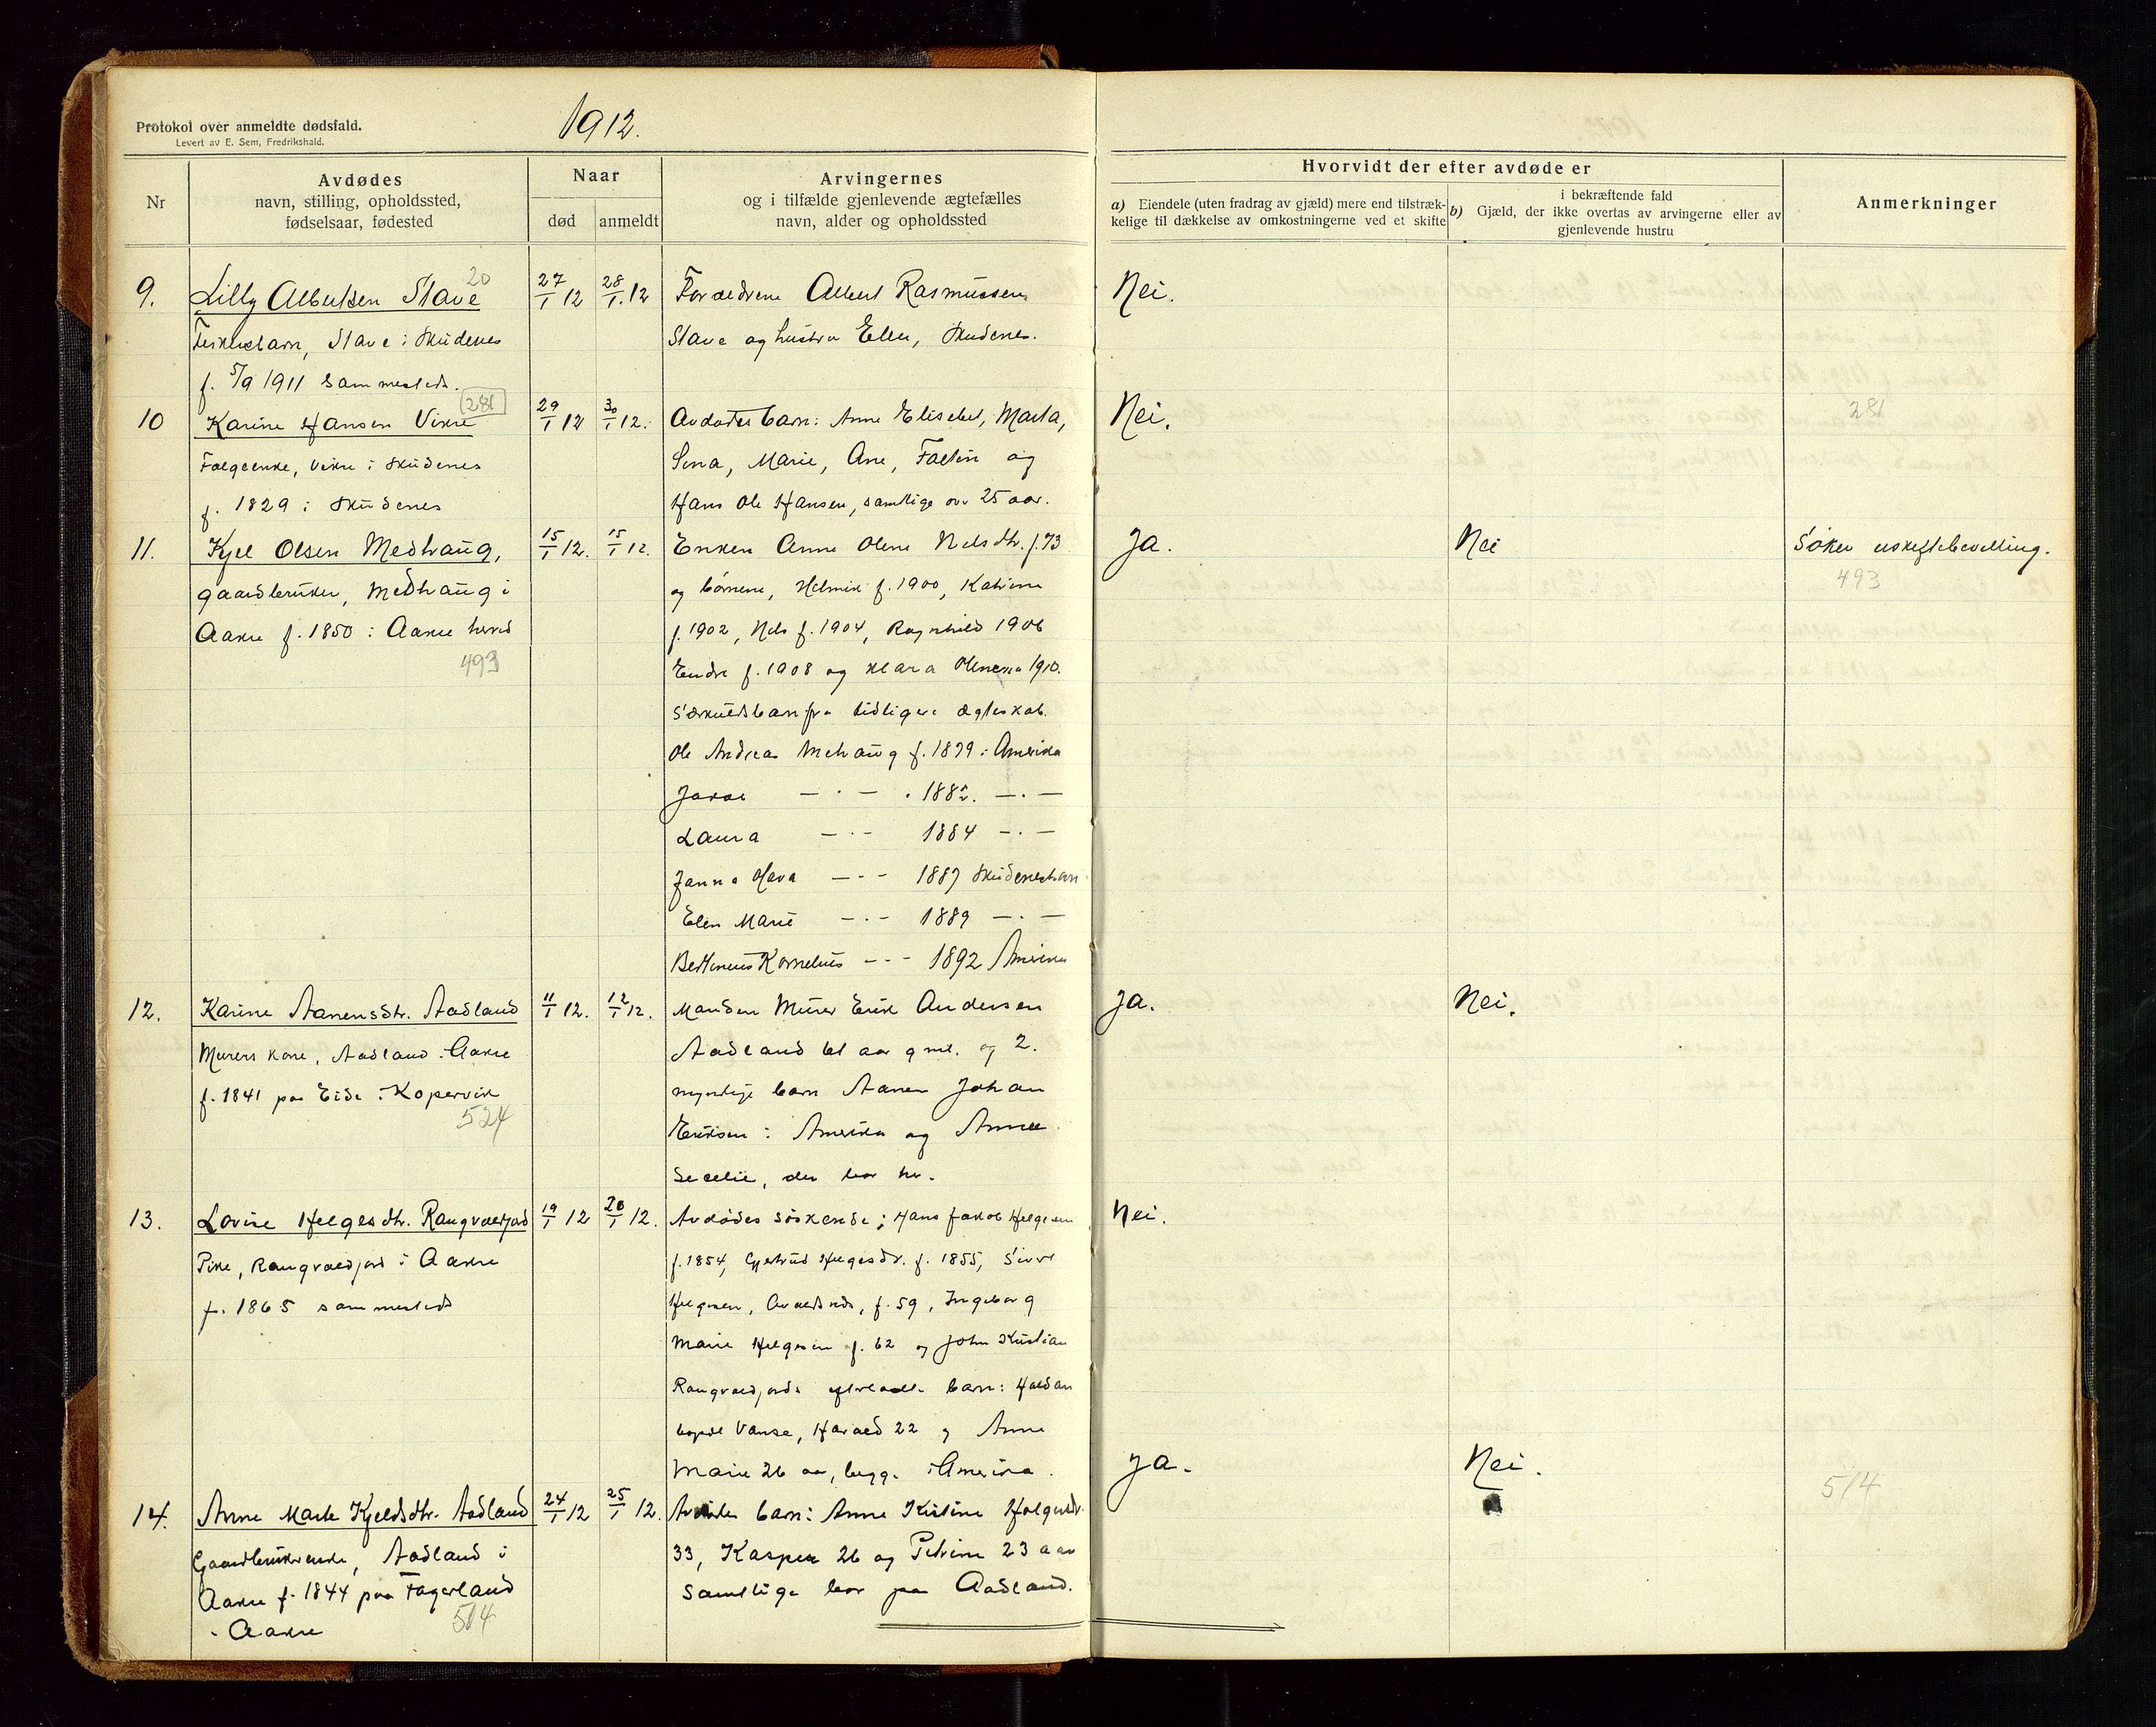 Protokol over anmeldte dødsfald.
Levert av E. Sem, Fredrikshald.
1912.
Nr
Avdødes
navn, stilling, opholdssted,
fødselsaar, fødested
Naar
død
anmeldt
Arvingernes
og i tilfælde gjenlevende ægtefælles
navn, alder og opholdssted
Hvorvidt der efter avdøde er
a) Eiendele (uten fradrag av gjæld) mere end tilstræk-
kelige til dækkelse av omkostningerne ved et skifte
i bekræftende fald
b) Gjæld, der ikke overtas av arvingerne eller av
gjenlevende hustru
Anmerkninger
9.
20
Lilly Albertsen Stave
Stave i Skudenes
f. 5/9 1911 sammesteds.
27/1 12
28/1. 12
Forældrene Albert Rasmussen
Stave og hustru Ellen, Skudenes.
Nei.
10
281
Karine Hansen Vikre
Folgeenke, Vikre i Skudenes
f. 1829 i Skudenes
29/1 12
30/1 12.
Avdødes barn: Anne Elisebet, Marta,
Sina, Marie, Ane, Fæltin og
Hans Ole Hansen, samtlige over 25 aar.
Nei.
281
11.
Kjel Olsen Medhaug,
gaardbruker, Medhaug i
Aakre f. 1850 i Aakre herred
493
15/1 12.
15/1 12.
Enken Anne Olene Nelsdtr. f. 73
og børnene, Helmik f. 1900, Katrine
f. 1902, Nels f. 1904, Ragnhild 1906
Endre f. 1908 og Klara 1910.
Særkuldsbarn fra tidligere ægteskab.
Ole Andreas Mehaug f. 1879 i Amerika
Jakob — · — · 1882. — · —
Laura — · — 1884 — · —
Janna Olava — · — 1887 Skudeneshavn
Elen Marie — · — 1889 — · —
Bertinius Kornelius — · — 1892 Amerika
Ja.
Nei
Søker uskiftebevilling.
493
12.
Karine Aanensdtr. Aadland
Murers kone, Aadland i Aakre
f. 1841 paa Eide i Kopervik
524
11/1 12.
12/1 12.
Manden Murer Erik Andersen
Aadland 61 aar gml. og 2.
myndige barn Aanen Johan
Eriksen i Amerika og Anne
Secelie, der bor her.
Ja.
Nei.
13.
Lovise Helgesdtr. Rangvaldjord
Pike, Rangvaldjord i Aakre
f. 1865 sammesteds
19/1 12
20/1 12.
Avdødes søskende; Hans Jakob Helgesen
f. 1854, Gjertrud Helgesdr. f. 1855, Sivert
Helgesen, Avaldsnes, f. 59, Ingeborg
Marie Helgesen f. 62 og John Kristian
Rangvaldjords efterladte barn: Haldan
Vanse, Harald 22 og Anne
Marie 26 aar, begge i Amerika.
Nei.
14.
Anne Marte Kjeldsdtr. Aadland
Gaardbrukerenke, Aadland i
Aakre f. 1844 paa Fagerland
i Aakre
514
24/1 12
25/1 12.
Avdødes barn: Anne Kristine Holgersdtr.
33, Kasper 26 og Petrine 23 aar
samtlige bor paa Aadland.
Ja.
Nei.
514